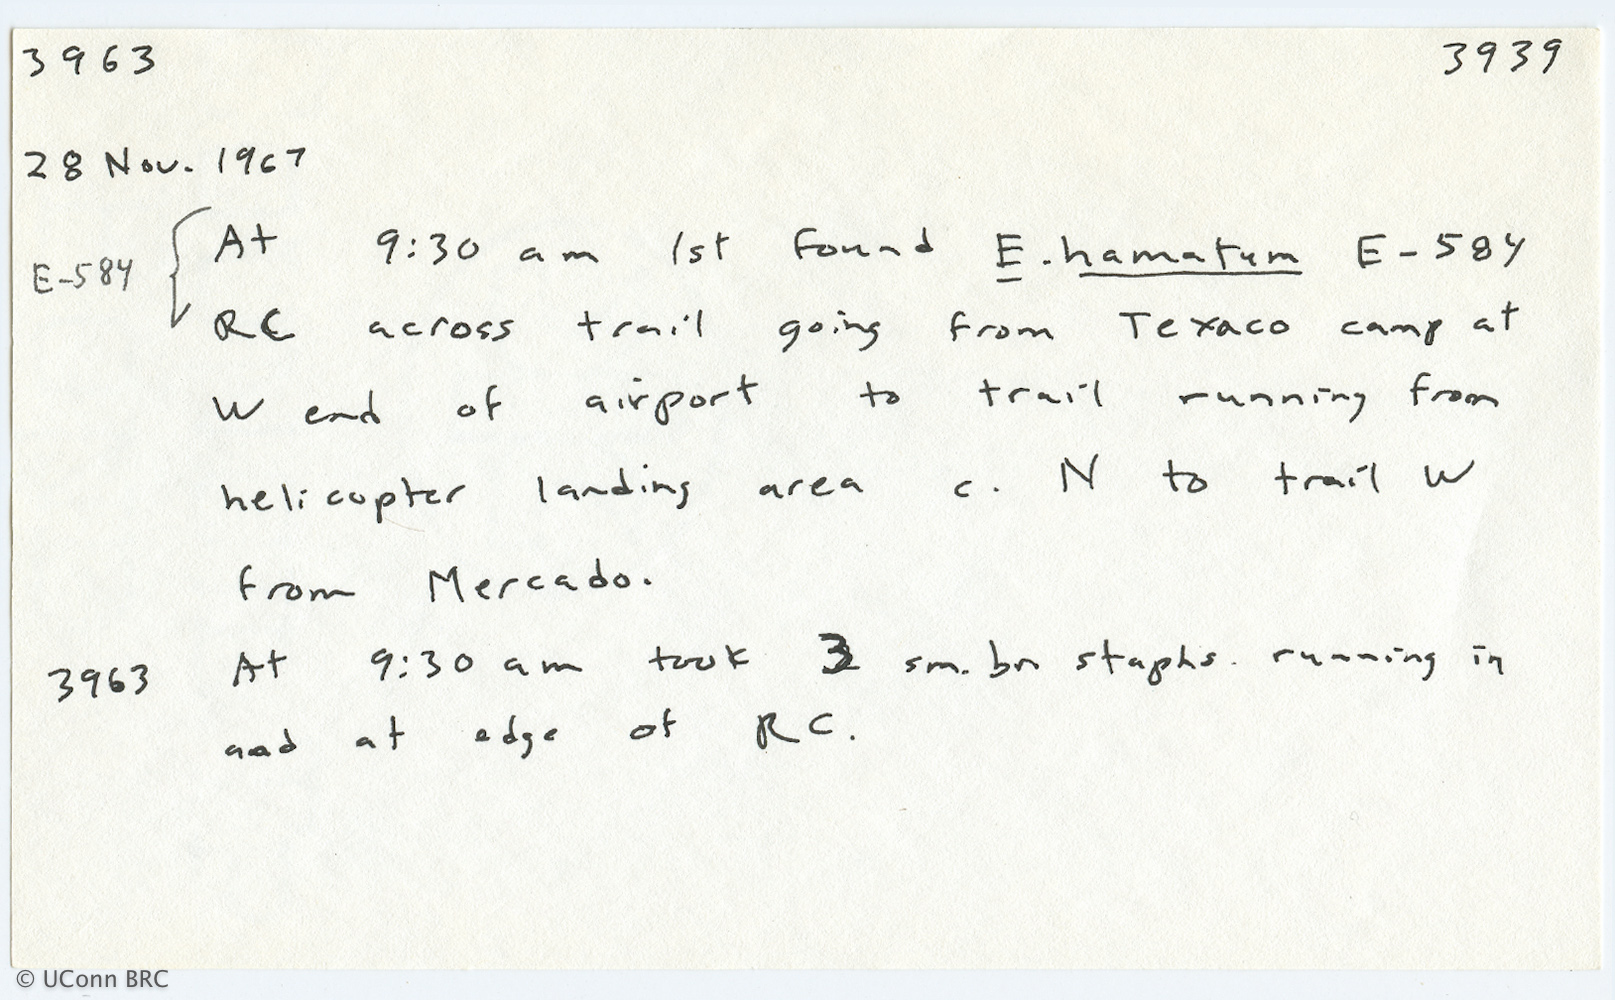 3963 3939
28 Nov. 1967
E-584 At 9:30 am 1st found E. hamatum E-584
RC across trail going from Texaco camp at
W end of airport to trail running from
helicopter landing area c. N to trail W
from Mercado.
3963 At 9:30 am took 3 sm. bn staphs. running in
and at edge of RC.
© UConn BRC